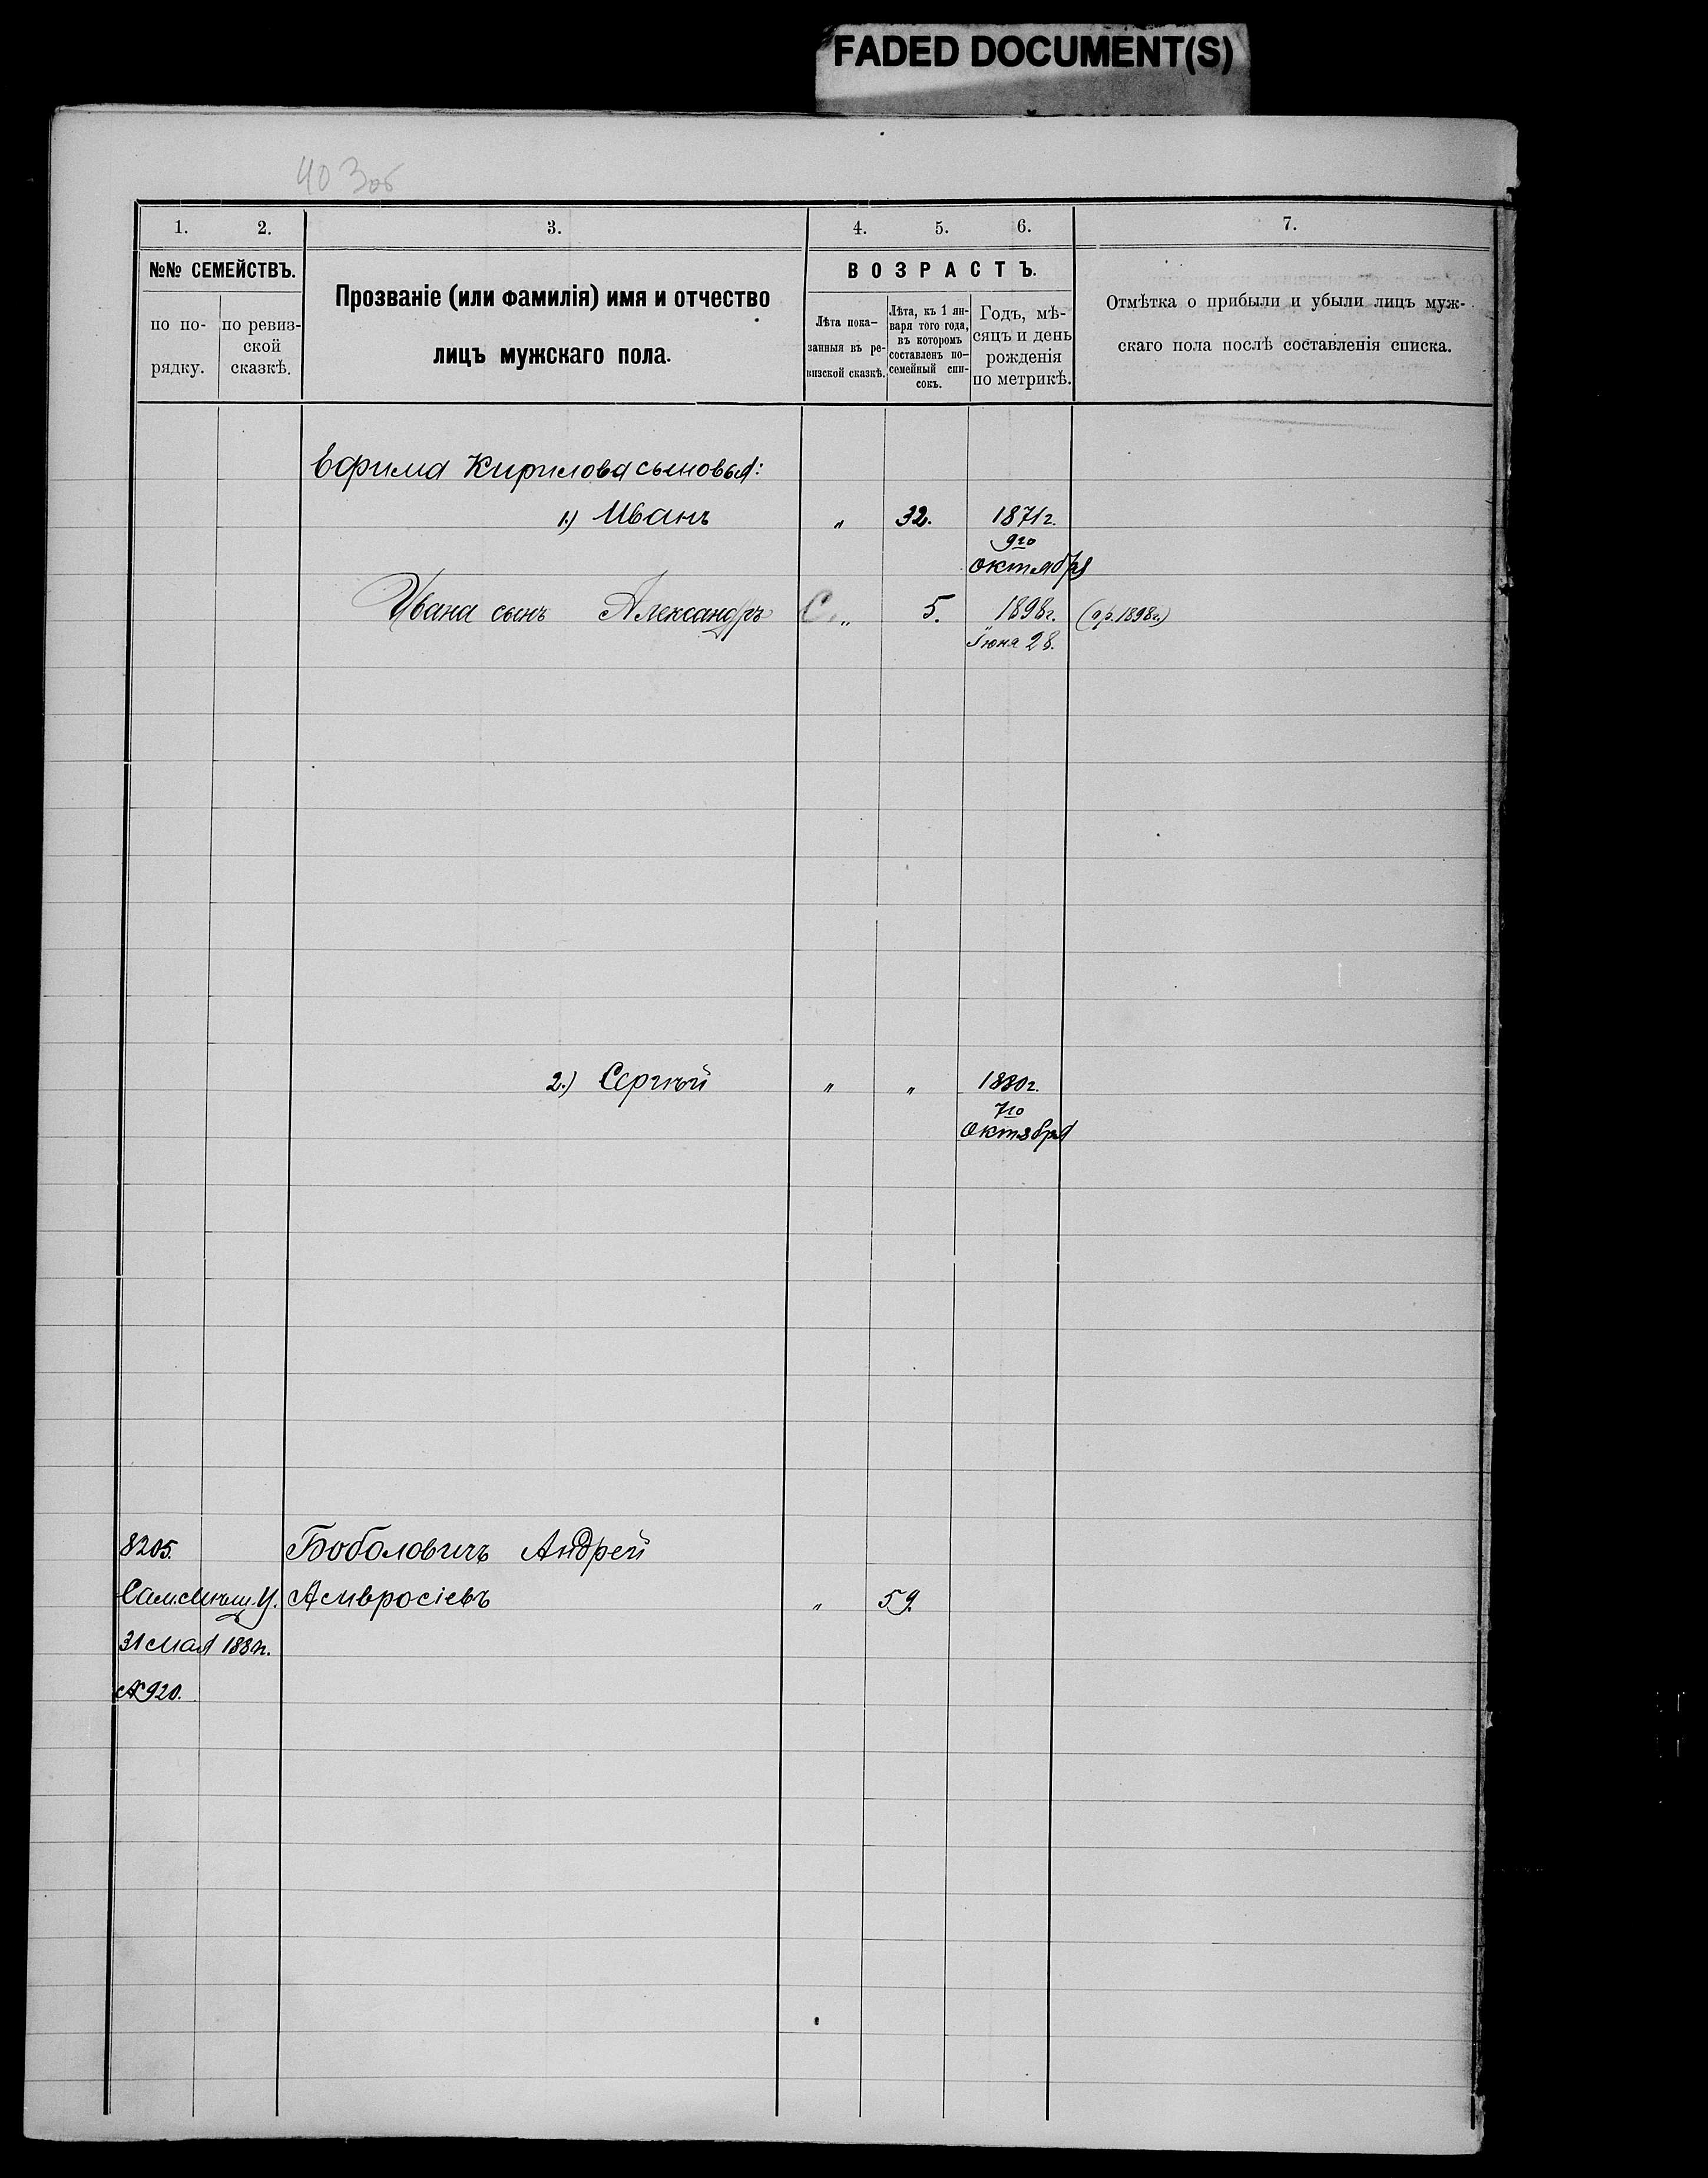 FADED DOCUMENT(S)
403об
1. 2. 3. 4. 5. 6. 7.
№№ СЕМЕЙСТВЪ.
по по-
рядку.
по ревиз-
ской
сказкѣ.
Прозваніе (или фамилія) имя и отчество
лицъ мужскаго пола.
ВОЗРАСТЪ.
Лѣта пока-
занныя въ ре-
визской сказкѣ.
Лѣта, къ 1 ян-
варя того года,
въ которомъ
составленъ по-
семейный спи-
сокъ.
Годъ, мѣ-
сяцъ и день
рожденія
по метрикѣ.
Отмѣтка о прибыли и убыли лицъ муж-
скаго пола послѣ составленія списка.
Ефима Кирилова сыновья:
1.) Иванъ " 32. 1871 г.
9го
октября
Ивана сынъ Александръ С. " 5. 1898 г. (пр. 1898 г.)
Іюня 28.
2.) Сергѣй " " 1880 г.
7го
октября
8205. Боболовичъ Андрей
Амвросіевъ " 59.
31 мая
№ 920.